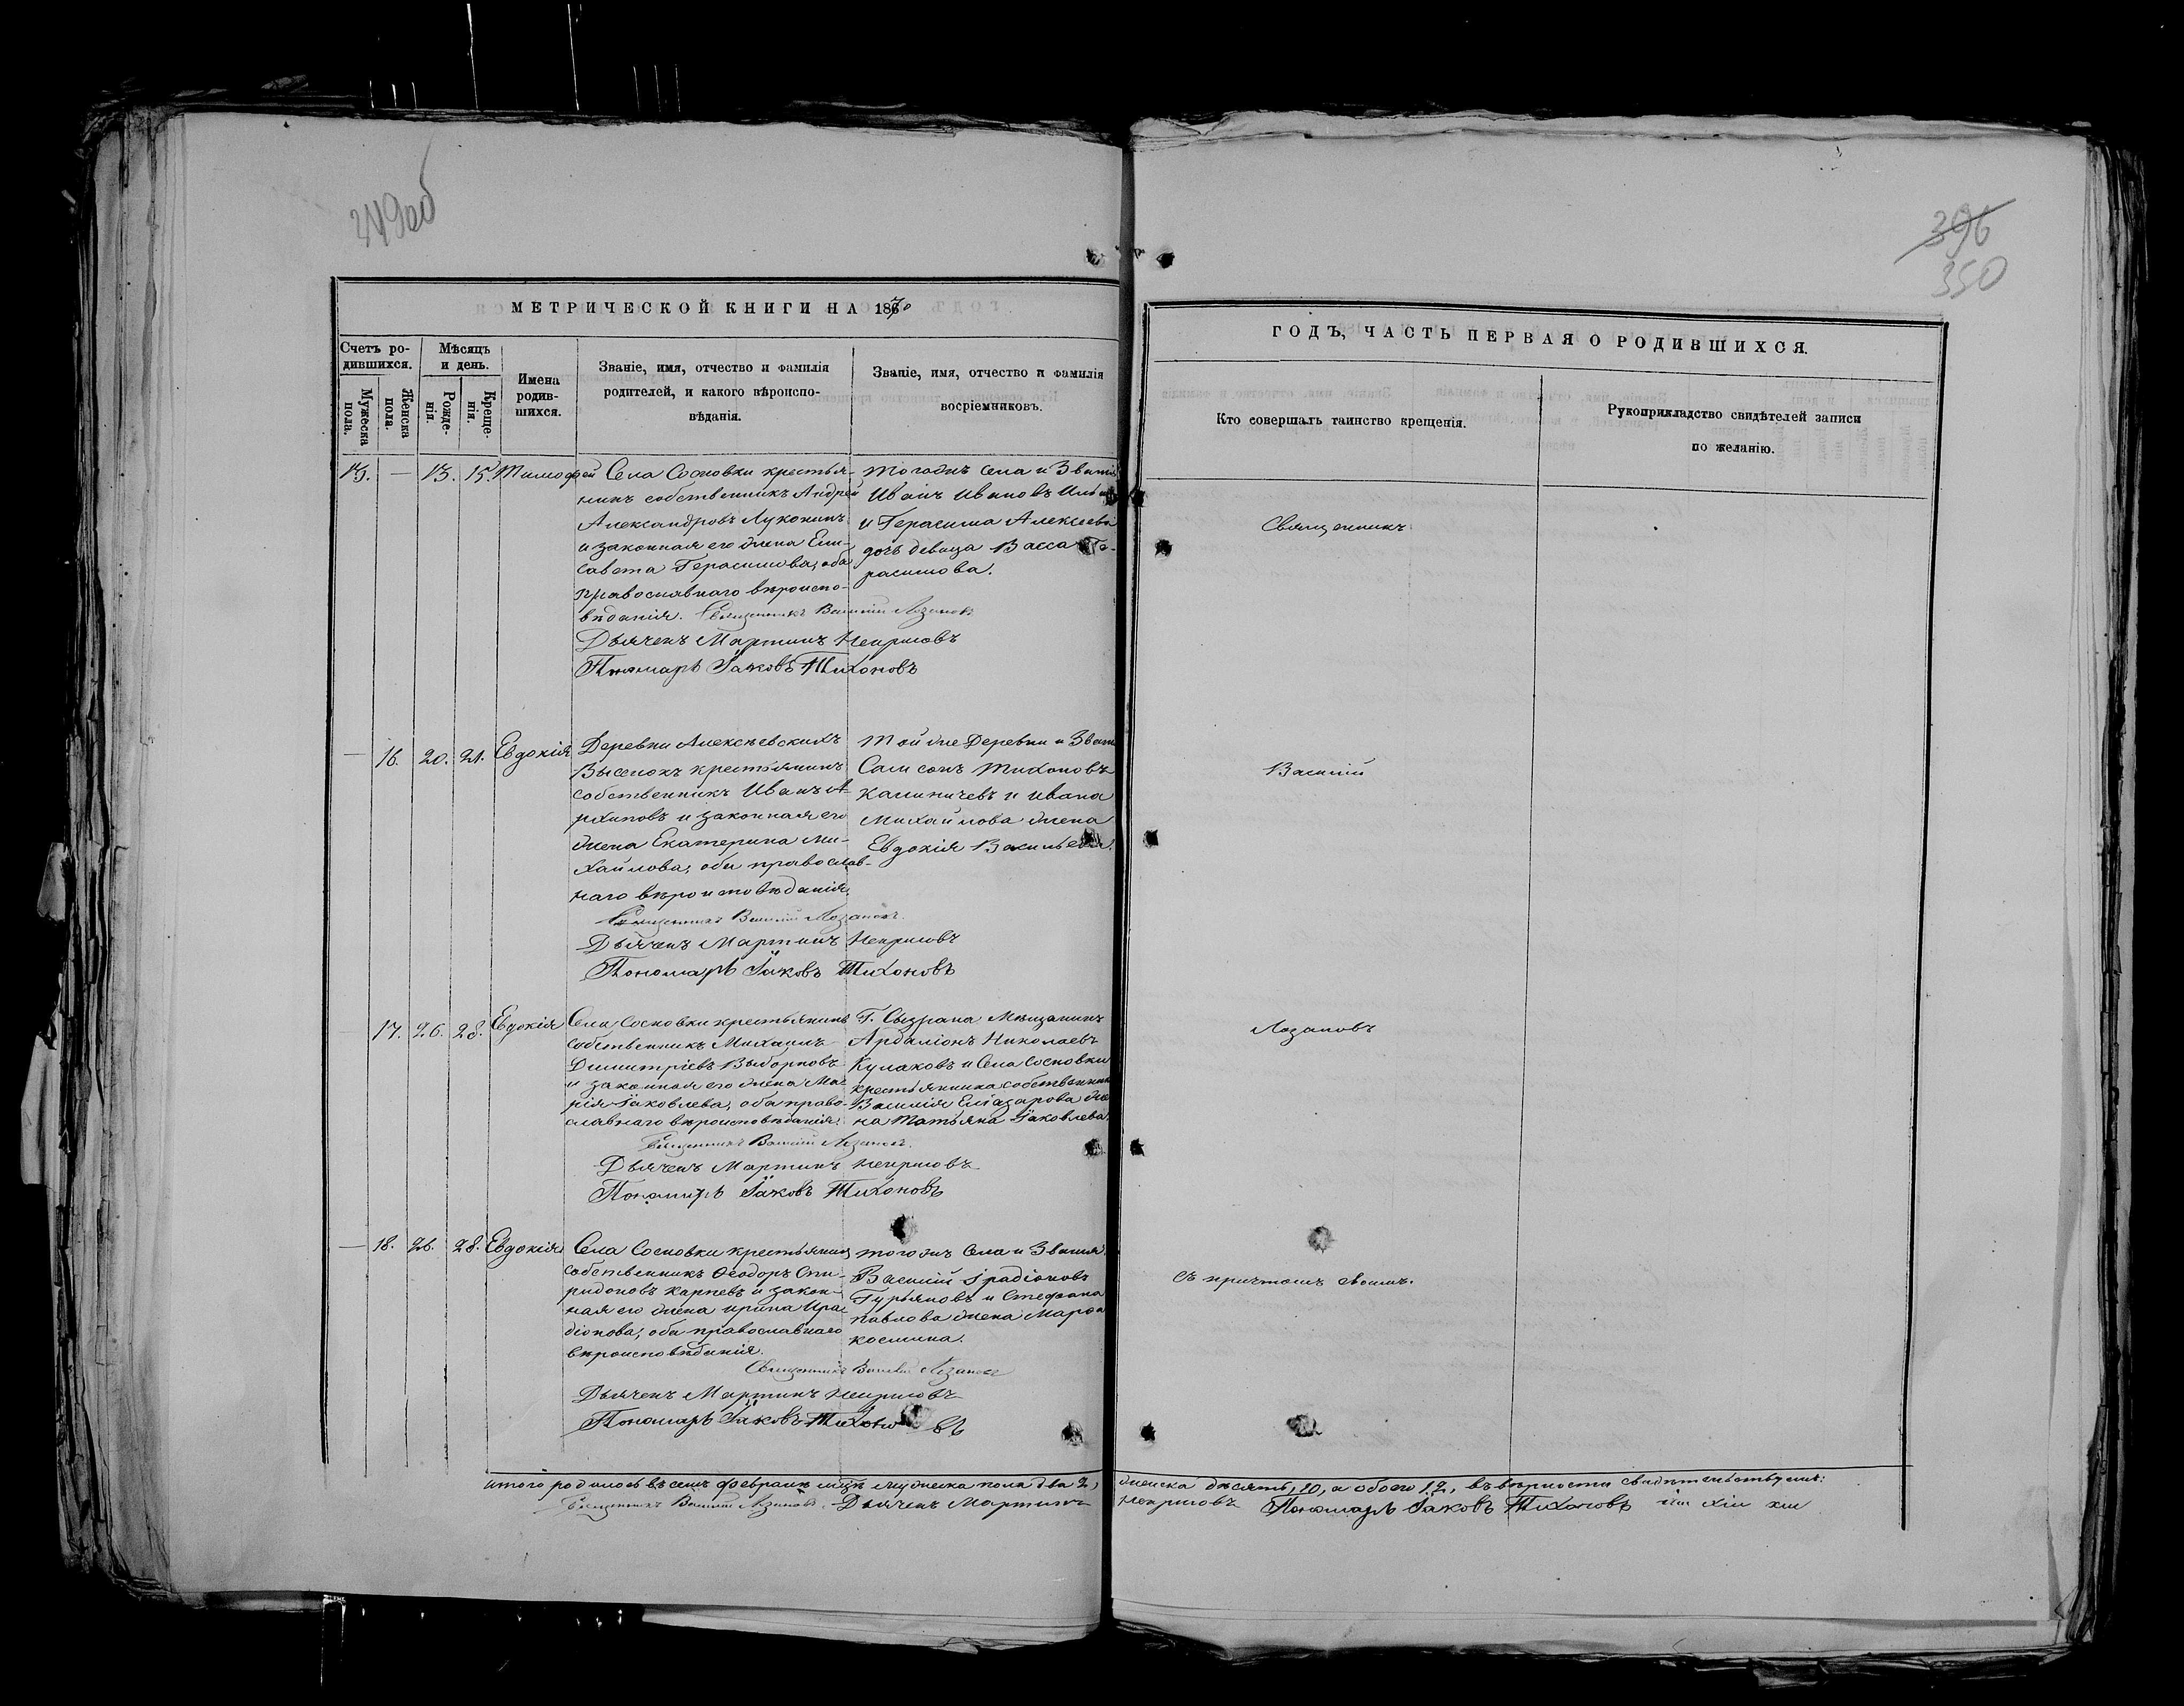 349об
396
350
МЕТРИЧЕСКОЙ КНИГИ НА 1870
ГОДЪ, ЧАСТЬ ПЕРВАЯ О РОДИВШИХСЯ.
Счетъ ро-
дившихся.
Мужеска пола.
Женска пола.
Мѣсяцъ
и день.
Рожде-
нія.
Креще-
нія.
Имена
родив-
шихся.
Званіе, имя, отчество и фамилія
родителей, и какого вѣроиспо-
вѣданія.
Званіе, имя, отчество и фамилія
воспріемниковъ.
Кто совершалъ таинство крещенія.
Рукоприкладство свидѣтелей записи
по желанію.
— 13. 15. Тимофей
Села Сосновки крестья-
нинъ собственникъ Андрей
Александровъ Луконинъ
и законная его жена Ели-
савета Герасимова, оба
православнаго вѣроиспо-
вѣданія. Священникъ Василій Лозановъ
Дьячекъ Мартинъ
Пономарь Іаковъ Тихоновъ
Тогожъ села и Званія
Иванъ Ивановъ
и Герасима Алексеева
дочь девица Васса Ге-
расимова.
Священникъ
— 16. 20. 21. Евдокія
Деревни Алексѣевскихъ
Выселокъ крестьянинъ
собственникъ Иванъ А-
рхиповъ и законная его
жена Екатерина Ми-
хайлова, оба православ-
наго вѣроисповѣданія.
Священникъ Василій Лозановъ.
Дьячекъ Мартинъ
Пономарь Іаковъ Тихоновъ
Той же Деревни и Званія
Самсонъ Тихоновъ
Калиничевъ и Ивана
Михайлова жена
Евдокія Васильева.
Василій
17. 26. 28. Евдокія
Села Сосновки крестьянинъ
собственникъ Михаилъ
Димитріевъ Выборновъ
и законная его жена Ма-
рія Іаковлева, оба право-
славнаго вѣроисповѣданія.
Священникъ Василій Лозановъ.
Дьячекъ Мартинъ
Пономарь Іаковъ Тихоновъ
Г. Сызрана Мѣщанинъ
Ардаліонъ Николаевъ
Кулаковъ и Села Сосновки
крестьянина собственника
Василія Елиазарова же-
на Татьяна Іаковлева.
Лозановъ
— 18. 26. 28. Евдокія
Села Сосновки крестьянинъ
собственникъ Феодоръ Спи-
ридоновъ Карпевъ и закон-
ная его жена Ирина Ира-
діонова, оба православнаго
вѣроисповѣданія.
Священникъ Василій Лозановъ
Дьячекъ Мартинъ
Пономарь Іаковъ Тихоновъ
Тогожъ Села и Званія
Василій Ирадіоновъ
Гурьяновъ и Стефана
Павлова жена Марфа
Космина.
съ причтомъ своимъ.
Итого родилось въ семъ февралѣ мцѣ мужеска пола два 2, женска десять, 10, а обоего 12, въ вѣрности свидѣтельствуемъ:
Священникъ Василій Лозановъ. Дьячекъ Мартинъ
Пономарь Іаковъ Тихоновъ